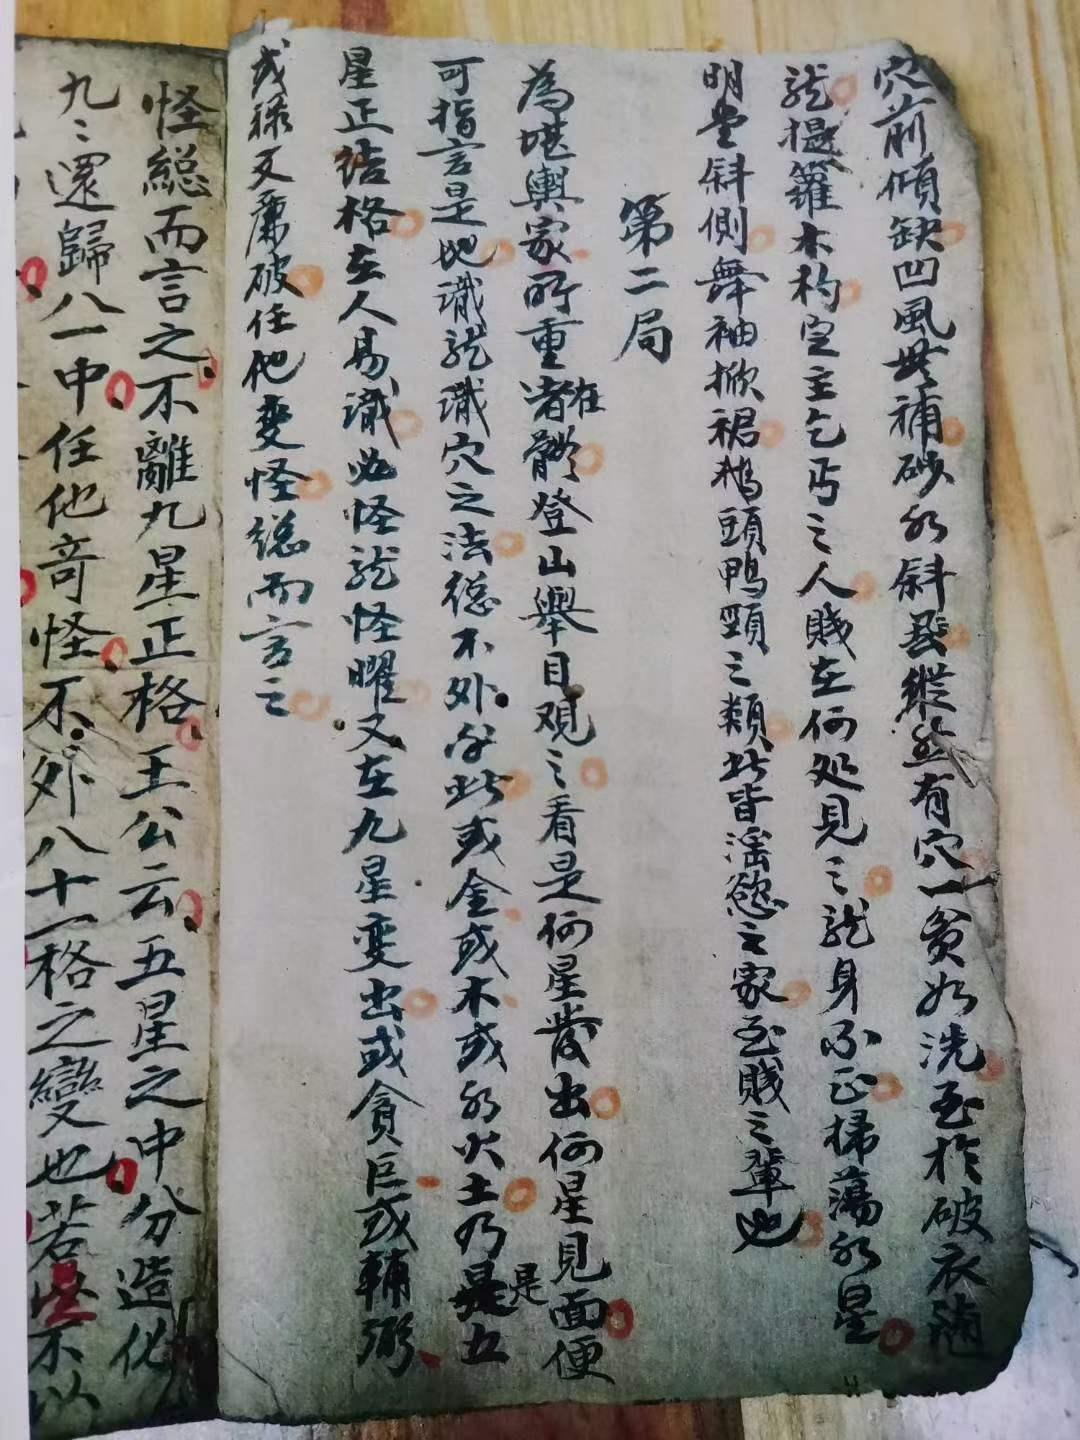 穴前傾缺凹風無補砂水斜飛縱然有穴一貧如洗至於破衣隨
龍提籮木杓定主乞丐之人賤在何处見之龍身不正掃蕩水星
明堂斜側舞袖掀裙鵝頭鴨頸之類此皆淫慾之家至賤之輩也
第二局
為堪輿家所重者在體登山舉目觀之看是何星發出何星見面便
可指言是地識龍識穴之法總不外乎此或金或木或水火土乃是五
星正结格在人易識必怪龍怪曜又在九星变出或貪巨或輔弼
或祿文廉破任他变怪總而言之
怪総而言之不離九星正格王公云五星之中分造化
九〻還歸八一中任他奇怪不外八十一格之變也若 不以